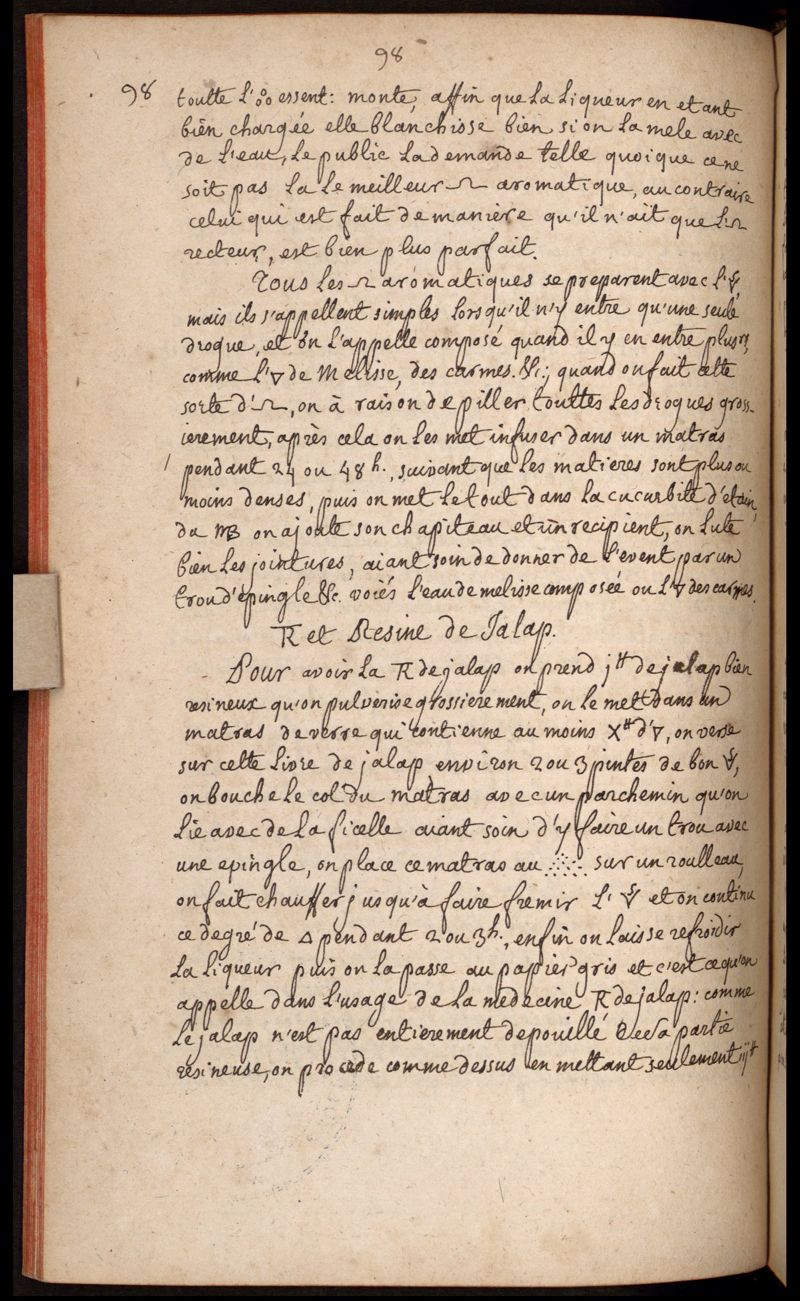 98
98 toutte l'🝆 essent: monte, affin que la liqueur en etant
bien chargée elle blanchisse bien si on la mele avec
de l'eau, le public la demande telle quoique ce ne
soit pas la le meilleur 🝖 aromatique, au contraire
celui qui est fait de maniere qu'il n'ait que l'🝖
recteur, est bien plus parfait.
Tous les 🝖 aromatiques se preparent avec l'🜈
mais ils s'appellent simples lors qu'il n'y entre qu'une seule
drogue, et on l'appelle composé quand il y en entre plusrs,
comme l'▽ de Melisse, des carmes. &c; quand on fait cette
sorte d'🝖, on à raison de piller touttes les drogues gross-
ierement, après cela on les met infuser dans un matras
/ pendant 24 ou 48 h., suivant que les matieres sont plus ou
moins denses, puis on met le tout dans la cucurbite d'etain
du MB on ajoute son chapiteau et un recipient, on lute
bien les jointures, aiant soin de donner de l'event par un
trou d'epingle &c. voiés l'eau de melisse composée ou l'▽ des carmes.
TR et Resine de Jalap.
Pour avoir la TR de jalap on prend j ℔ de jalap bien
resineux qu'on pulverise grossierement, on le met dans un
matras de verre qui contienne au moins X ℔ d'▽, on verse
sur cette livre de jalap environ 2 ou 3 pintes de bon 🜈,
on bouche le col du matras avec un parchemin qu'on
lie avec de la ficelle aiant soin d'y faire un trou avec
une epingle, on place ce matras au ⁘ sur un roulleau,
on fait chauffer jusqu'à faire fremir l'🜈 et on continu
ce degré de △ pendant 2 ou 3 h., enfin on laisse refroidir
la liqueur puis on la passe au papier gris et c'est ce qu'on
appelle dans l'usage de la medecine TR de jalap: comme
le jalap n'est pas entierement depouillé de sa partie
resineuse, on procede comme dessus en mettant seulement ij ℔